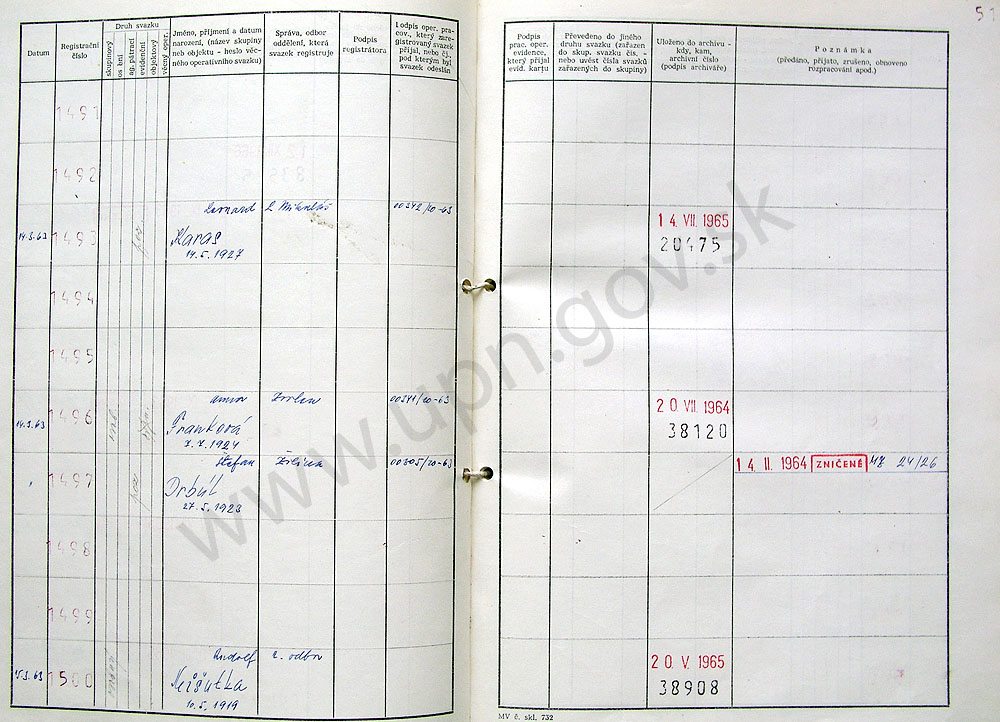 51
Datum
Registrační číslo
Druh svazku
skupinový
osobní
ag. pátrací
evidenční
objektový
věcný oper.
Jméno, příjmení a datum
narození, (název skupiny
neb objektu - heslo věc-
ného operativního svazku)
Správa, odbor
oddělení, která
svazek registruje
Podpis
registrátora
Podpis oper. pra-
cov., který zare-
gistrovaný svazek
přijal, nebo čj.,
pod kterým byl
svazek odeslán
Podpis
prac. oper.
evidence,
který přijal
evid. kartu
Převedeno do jiného
druhu svazku (zařazen
do skup. svazku čís. -
nebo uvést čísla svazků
zařazených do skupiny)
Uloženo do archivu -
kdy, kam,
archivní číslo
(podpis archiváře)
Poznámka
(předáno, přijato, zrušeno, obnoveno
rozpracování apod.)
1491
1492
Leonard
00342/20-63
14.3.63 1493 Karas
14.5.1927
14. VII. 1965
20475
1494
1495
Anna Zvolen 00341/20-63
14.3.63 1496 Franková
7.7.1924
20. VII. 1964
38120
Štefan Žilina 00305/20-63
1497 Drbúl
27.5.1923
14. II. 1964 ZNIČENÉ 24/26
1498
1499
Rudolf 2. odbor
15.3.63 1500 Mišutka
10.5.1919
20. V. 1965
38908
MV č. skl. 732
www.upn.gov.sk